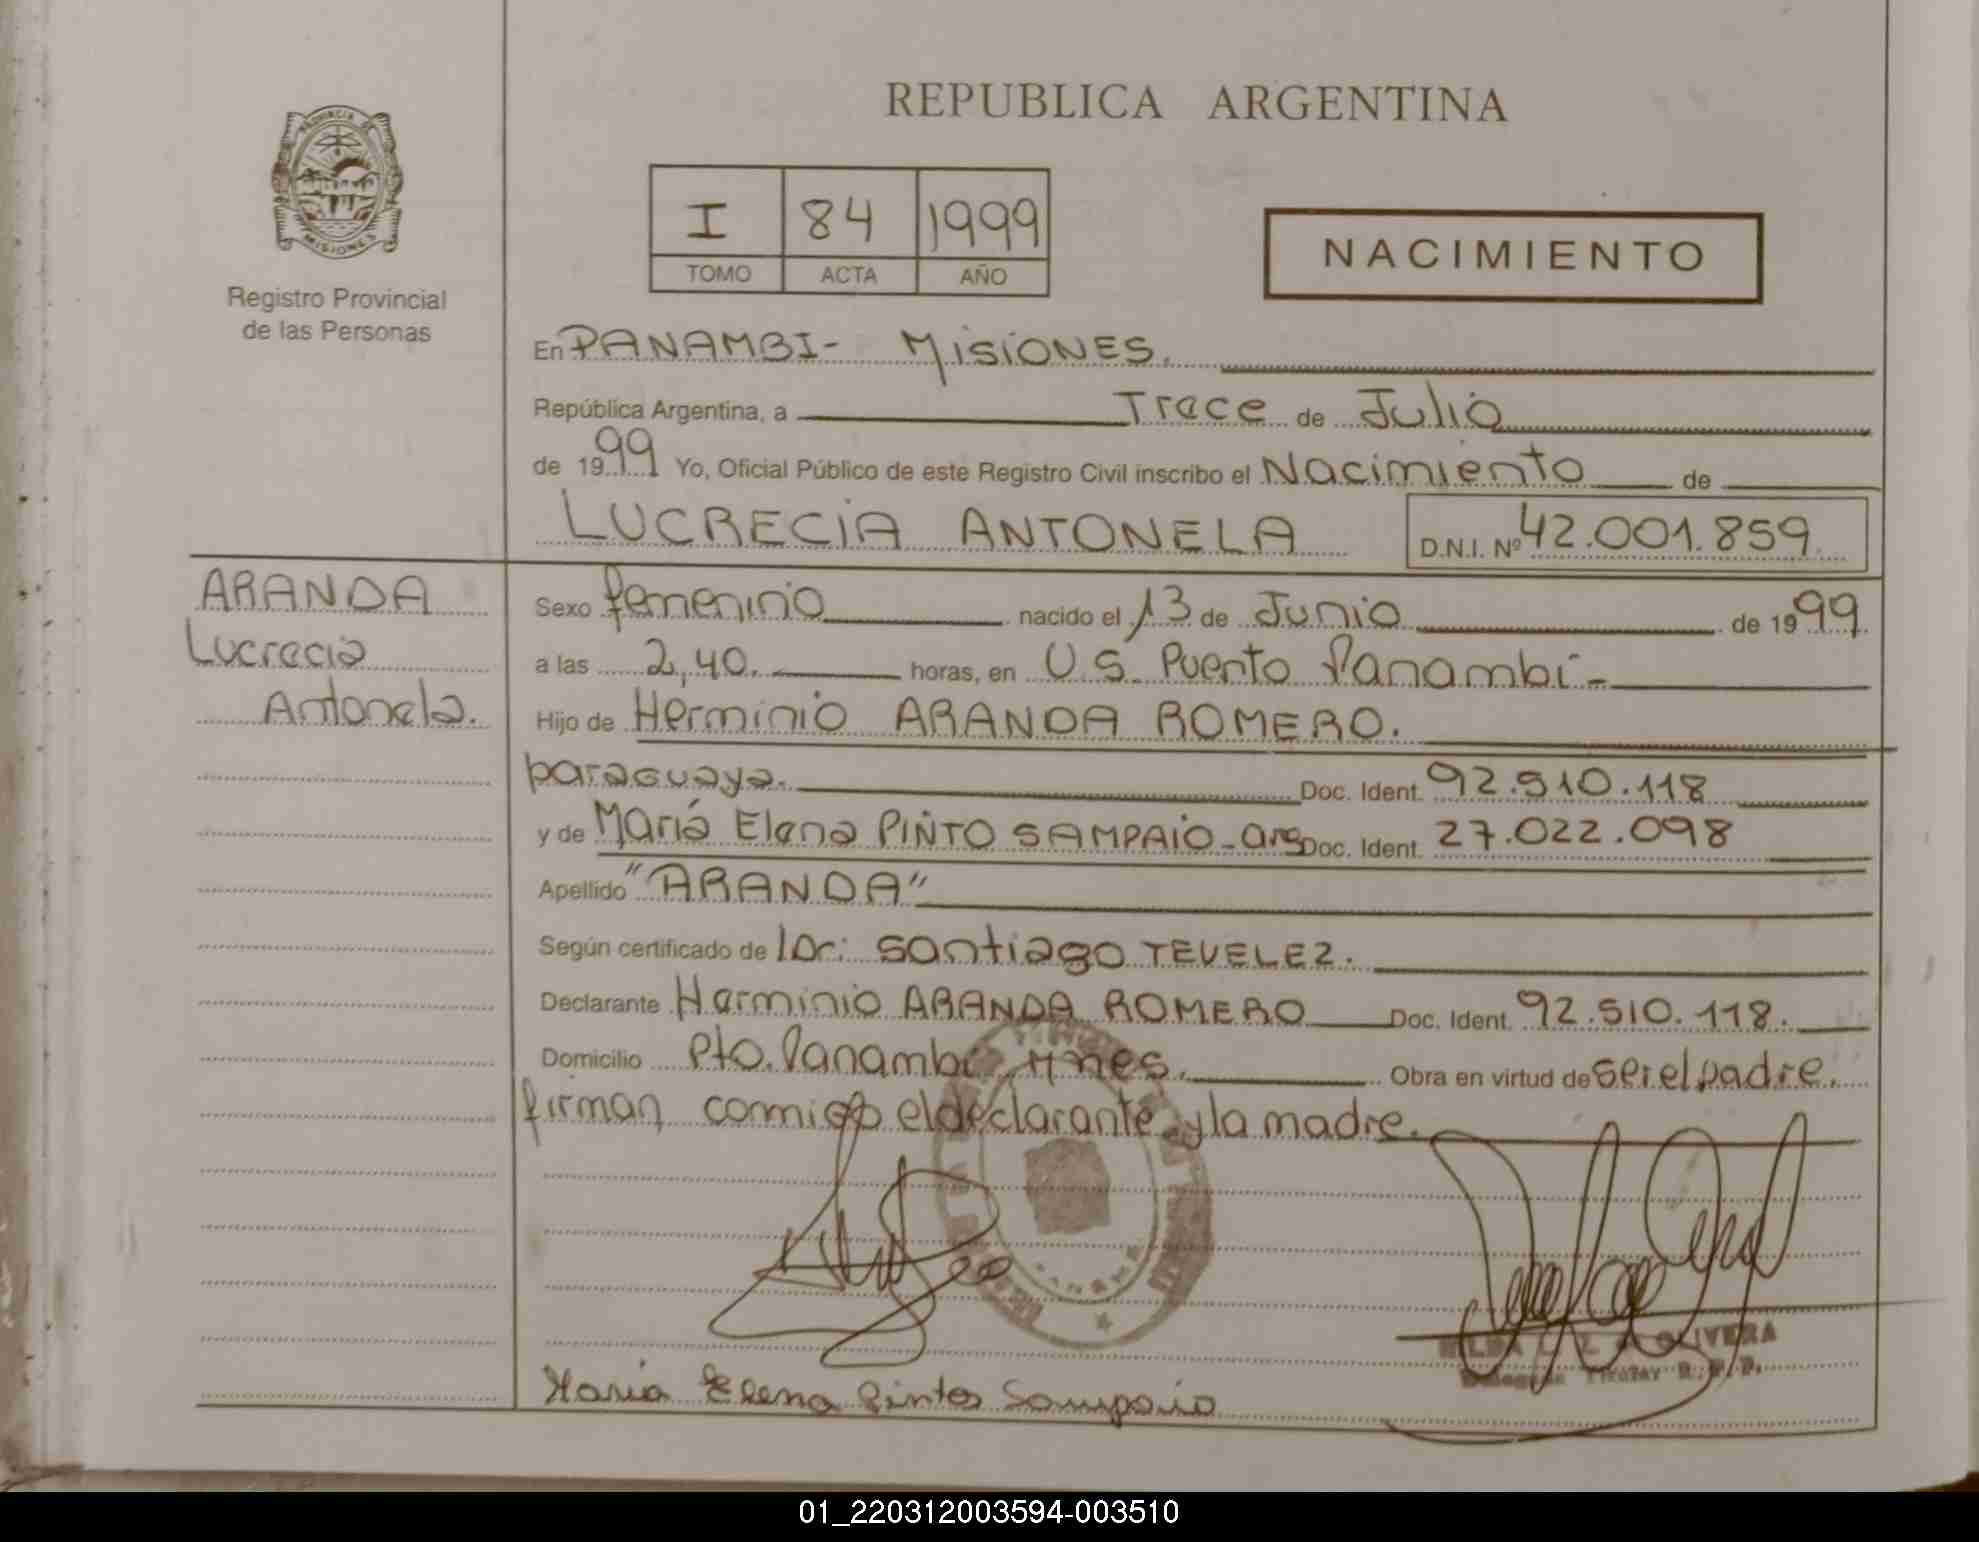 REPUBLICA ARGENTINA
PROVINCIA DE
MISIONES
Registro Provincial
de las Personas
I 84 1999
TOMO ACTA AÑO
NACIMIENTO
En PANAMBI- MISIONES.
República Argentina, a Trece de Julio
de 1999 Yo, Oficial Público de este Registro Civil inscribo el Nacimiento de
LUCRECIA ANTONELA D.N.I. Nº 42.001.859
ARANDA
Lucrecia
Antonela.
Sexo femenino nacido el 13 de Junio de 1999
a las 2,40. horas, en U.S. Puerto Panambí-
Hijo de Herminio ARANDA ROMERO.
paraguaya. Doc. Ident. 92.510.118
y de María Elena PINTO SAMPAIO-arg Doc. Ident. 27.022.098
Apellido "ARANDA"
Según certificado de Dr: Santiago TEVELEZ.
Declarante Herminio ARANDA ROMERO Doc. Ident. 92.510.118.
Domicilio Pto. Panambi Mnes. Obra en virtud de ser el padre.
firman conmigo el declarante y la madre.
OLIVERA
Maria Elena Pintos Sampaio
01_220312003594-003510